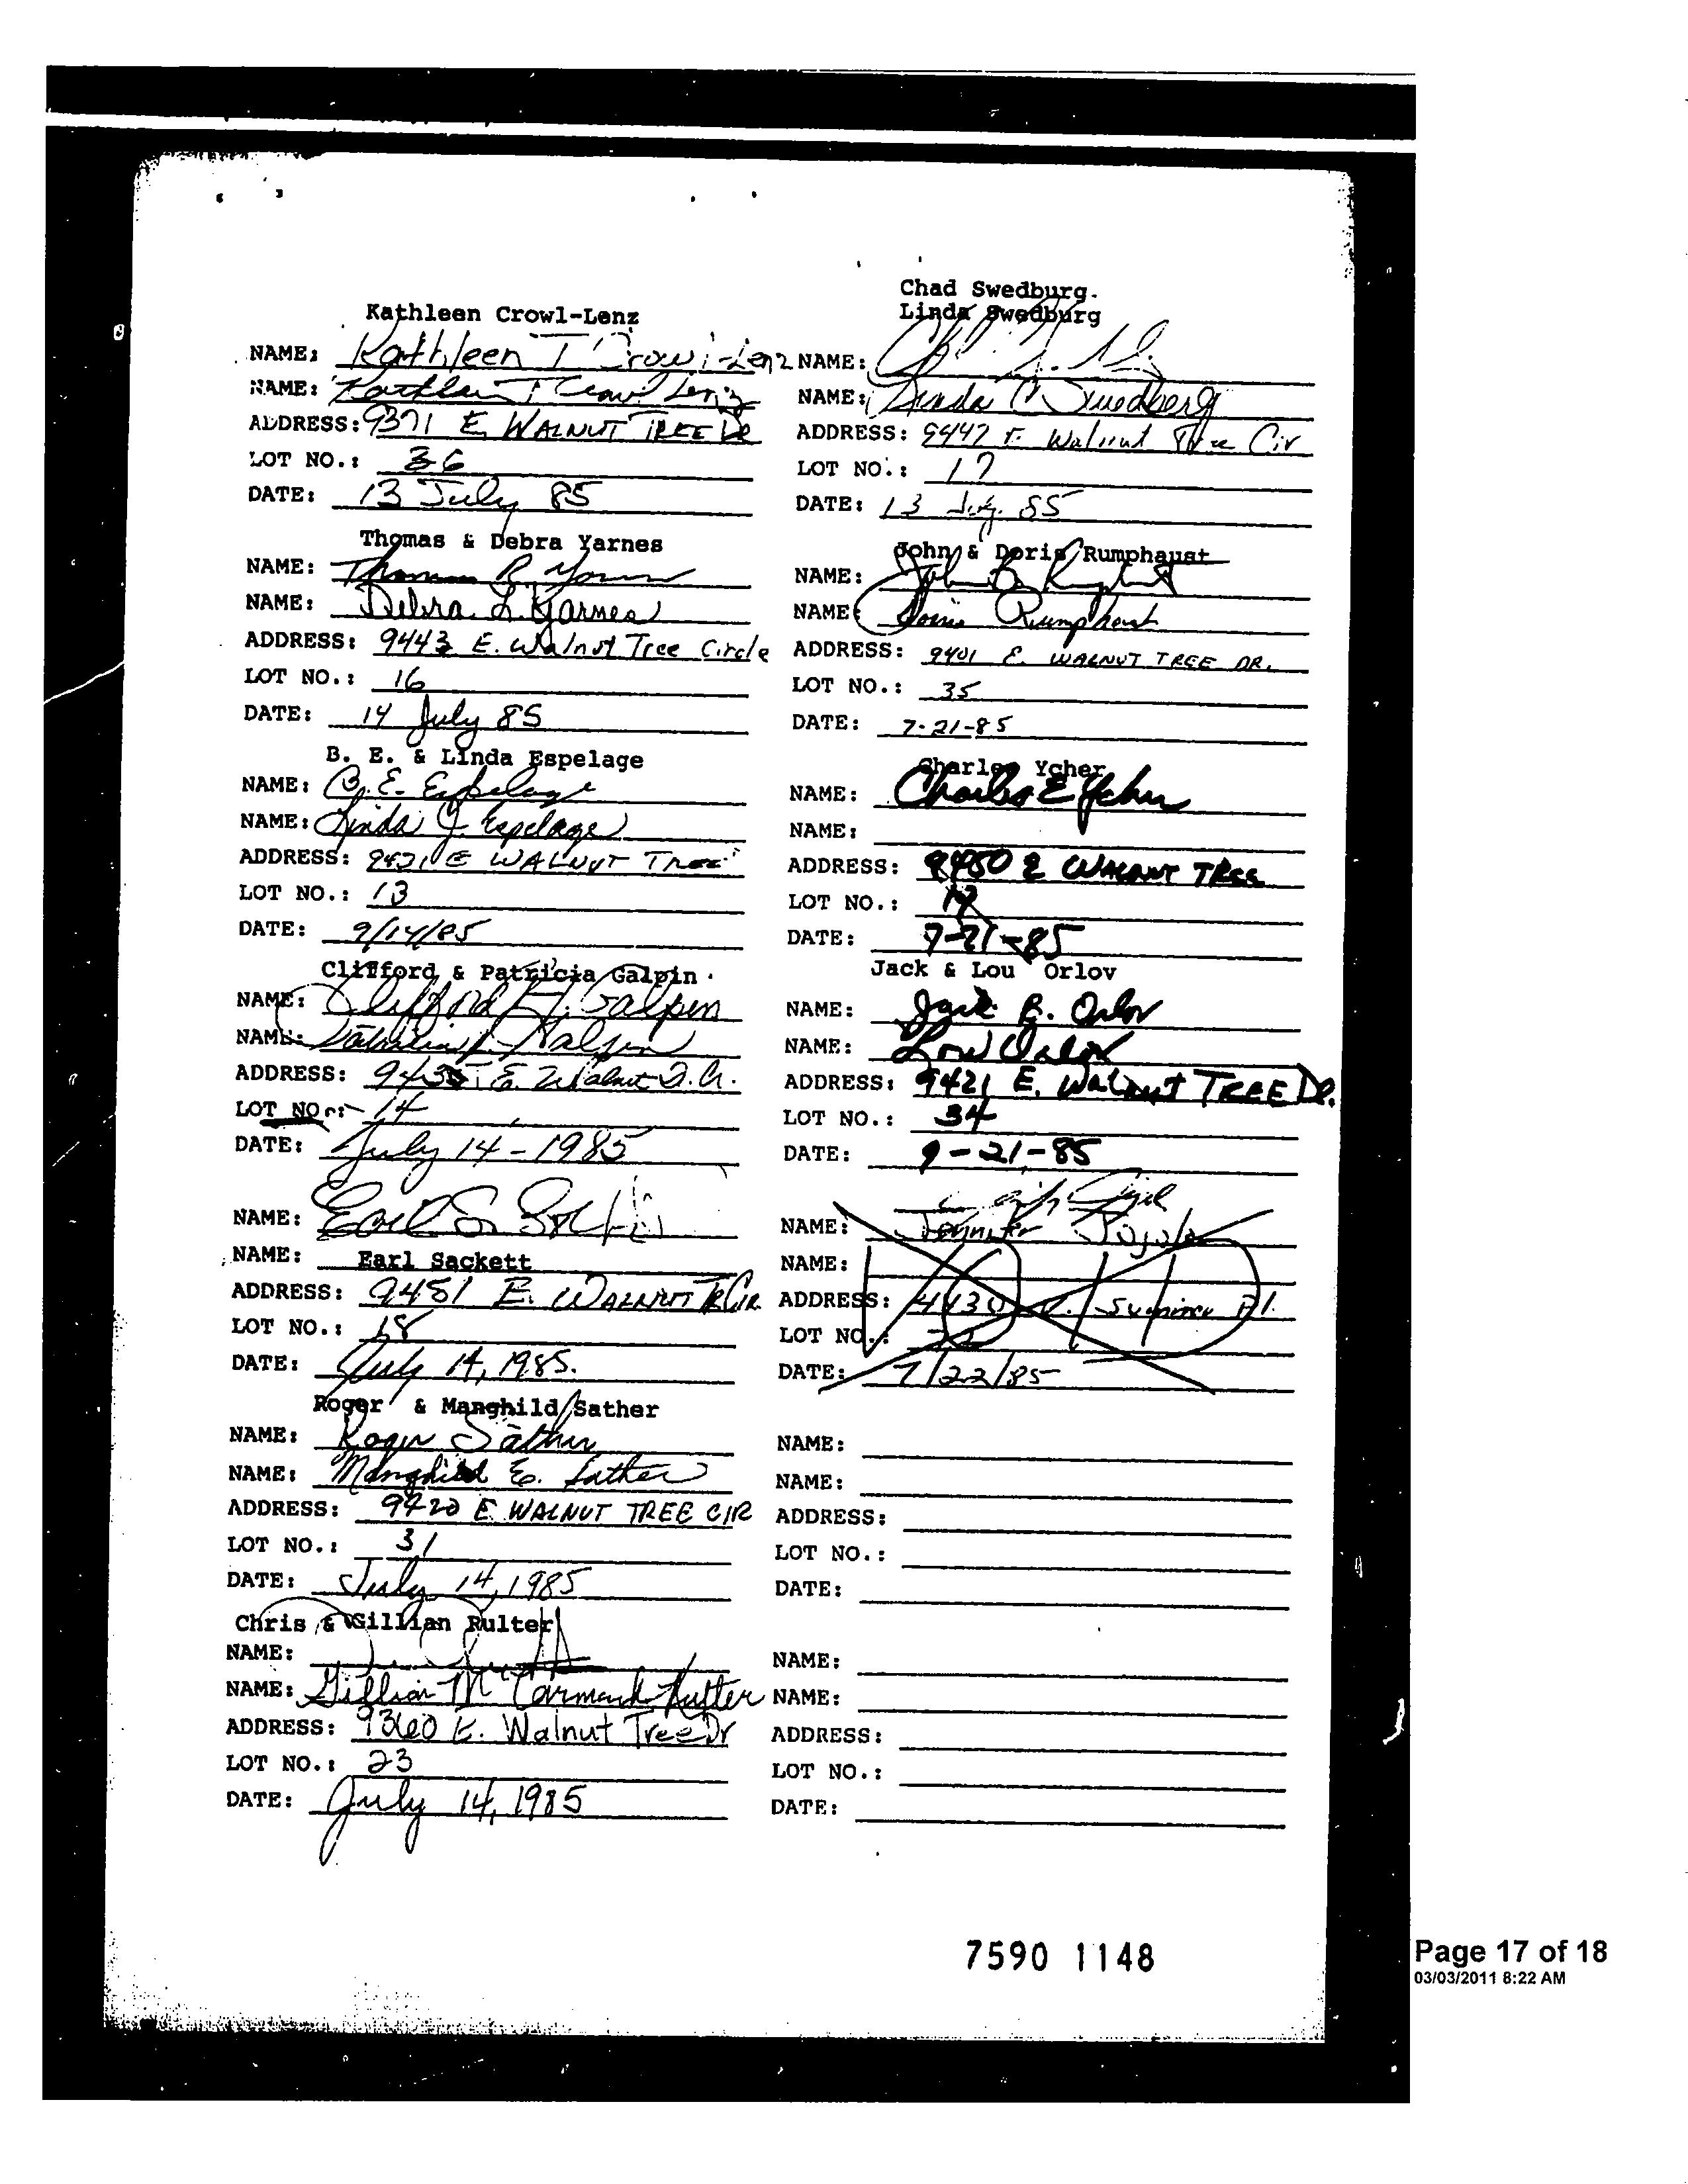 Kathleen Crowl-Lenz
NAME: Kathleen T Crowl-Lenz
NAME: Kathleen T Crowl Lenz
ADDRESS: 9371 E. WALNUT TREE DR
LOT NO.: 36
DATE: 13 July 85
Thomas & Debra Yarnes
NAME: Thomas R. Yarnes
NAME: Debra L. Yarnes
ADDRESS: 9443 E. Walnut Tree Circle
LOT NO.: 16
DATE: 14 July 85
B. E. & Linda Espelage
NAME: B. E. Espelage
NAME: Linda J. Espelage
ADDRESS: 9421 E WALNUT TREE
LOT NO.: 13
DATE: 9/14/85
Clifford & Patricia Galpin
NAME: Clifford H. Galpin
NAME: Patricia Galpin
ADDRESS: E. Walnut
LOT NO.: 14
DATE: July 14-1985
NAME: Earl S. Sackett
NAME: Earl Sackett
ADDRESS: 9451 E. WALNUT TR CIR
LOT NO.: 18
DATE: July 14, 1985.
Roger & Manghild Sather
NAME: Roger Sather
NAME: Manghild E. Sather
ADDRESS: 9420 E. WALNUT TREE CIR
LOT NO.: 31
DATE: July 14, 1985
Chris & Gillian Rulter
NAME:
NAME: Gillian McCormack Rutter
ADDRESS: 9360 E. Walnut Tree Dr
LOT NO.: 23
DATE: July 14, 1985
Chad Swedburg.
Linda Swedburg
NAME:
NAME: Linda C Swedberg
ADDRESS: 9447 E. Walnut Tree Cir
LOT NO.: 17
DATE: 13 85
John & Doris Rumphaust
NAME: John B.
NAME: Doris Rumphaust
ADDRESS: 9401 E. WALNUT TREE DR.
LOT NO.: 35
DATE: 7-21-85
Charles Ycher
NAME: Charles E Ycher
NAME:
ADDRESS: 9450 E WALNUT TREE
LOT NO.:
DATE: 7-21-85
Jack & Lou Orlov
NAME: Jack B. Orlov
NAME: Lou Orlov
ADDRESS: 9421 E. Walnut TREE DR.
LOT NO.: 34
DATE: 9-21-85
NAME: Jennifer
NAME:
ADDRESS: Pl.
LOT NO.:
DATE: 7/22/85
VOID
NAME:
NAME:
ADDRESS:
LOT NO.:
DATE:
NAME:
NAME:
ADDRESS:
LOT NO.:
DATE:
7590 1148
Page 17 of 18
03/03/2011 8:22 AM